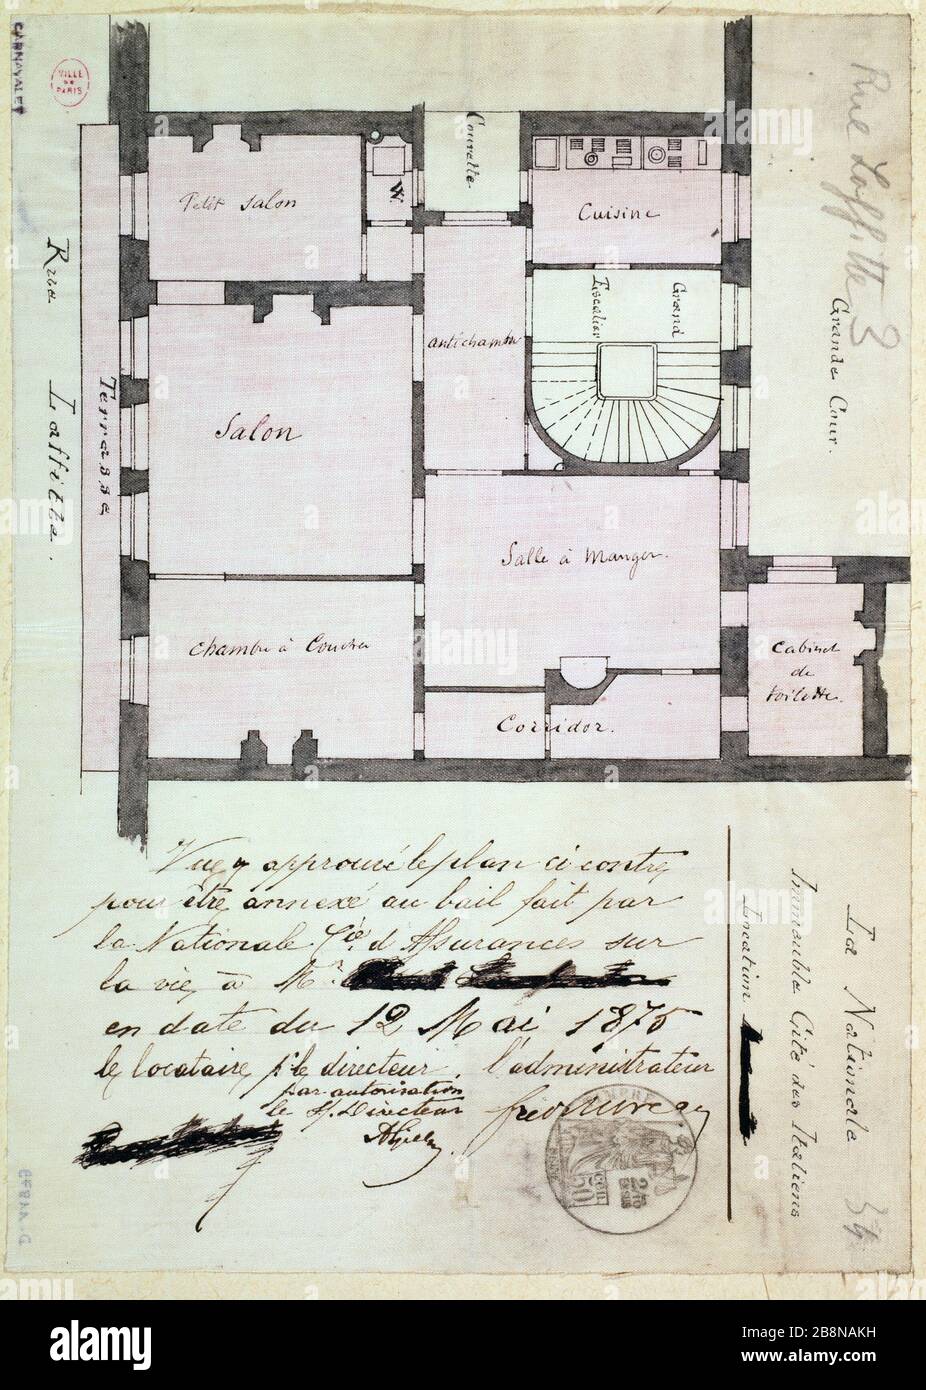 CARNAVALET
VILLE
DE
PARIS
Rue Laffitte 3
Courette
Petit Salon
W.
Cuisine
Grand
Escalier
Grande Cour.
Rue Laffitte.
Terrasse
antichambre
Salon
Salle à Manger.
Chambre à Coucher
Cabinet
de
toilette.
Corridor.
Vu & approuvé le plan ci contre
pour être annexé au bail fait par
la Nationale Cie d'Assurances sur
la vie, à Mr
en date du 12 Mai 1875
le locataire, p. le directeur. l'administrateur
par autorisation
le S/Directeur
La Nationale
Immeuble Cité des Italiens
Location
34
50
alamy
Image ID: 2B8NAKH
www.alamy.com